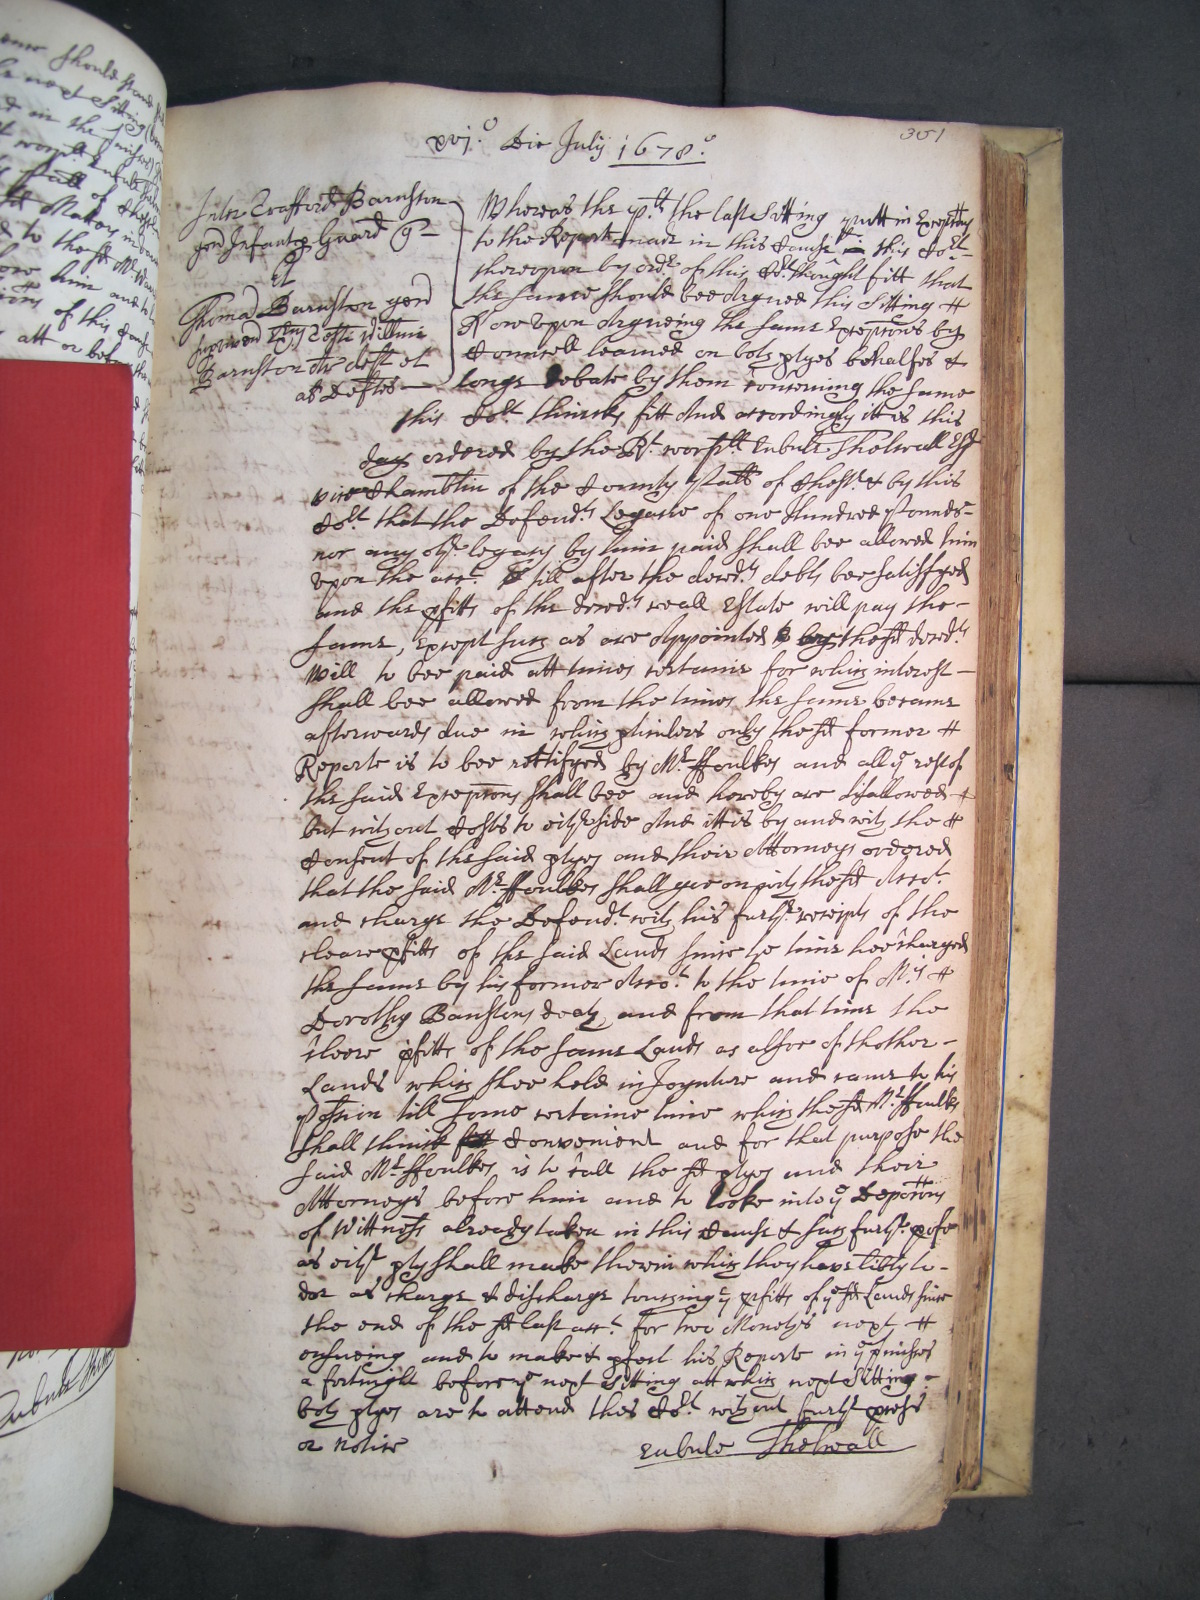 301
xvj.º Die July 1678º.
Inter Trafford Barnston
gen Infant p Guard q
et
Thomã Barnston gen
Barnston def et
al Deftes
Whereas the plt. the last Sitting putt in Excepcõns
to the Report made in this Cause in this Cort.
thereupon by ordr. of this Cort. thought fitt that
the same should bee Argued this Sitting
Now upon Argueing the same Excepcõns by
Councell learned on both ptyes behalfes &
longe debate by them concerning the same
this Cort. thincks fitt And accordingly itt is this
day ordered by the Rt. worpll Eubule Thelwall Esqr
vice Chamblin of the County Pallt of Chestr. & by this
Cort that the Defendts. Legacie of one Hundred Pounds
nor any othr legacy by him paid shall bee allowed him
upon the acct. till after the decds. debts bee satisfyed
and the pfitts of the decds. reall Estate will pay the
same, Except such as are Appointed by the sd decds.
Will to bee paid att times certaine for which interest
shall bee allowed from the times the same became
afterwards due in which pticulers only the sd former
Reporte is to bee rectifyed by Mr. ffoulkes and all ye rest of
the said Excepcõns shall bee and hereby are disallowed
but without Costs to eithr side And itt is by and with the
Consent of the said ptyes and their Attorneys ordered
that the said Mr. ffoulkes shall goe on with the sd Accot.
and charge the Defendt. with his furthr. receipts of the
cleare pfitts of the said Lands since ye time hee charged
the same by his former Accot. to the time of Mrs
Dorothy Barnstons death, and from that time the
cleere pfitts of the same Lands as alsoe of thother
Lands which shee held in Joynture and came to his
possion till some certaine time which the sd Mr. ffoulkes
shall thinck Convenient and for that purpose the
said Mr. ffoulkes is to call the sd ptyes and their
Attorneys before him and to looke into ye Deposicõns
of Wittness already taken in this Cause & such furthr. profe
as eithr pty shall make therein which they have liberty to
doe as charge & discharge touching ye pfitts of ye sd Lands since
the end of the sd last acct. for two Moneths next
ensueing and to make & pfect his Reporte in ye pmisses
a fortnight before ye next Sitting att which next Sitting
both ptyes are to attend this Cort. without furthr process
or notice
Eubule Thelwall